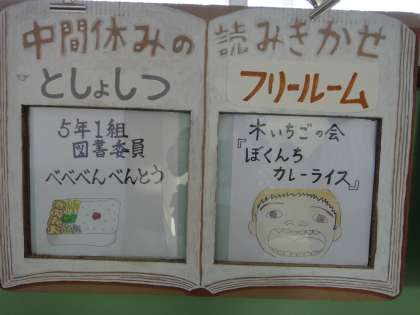 中間休みの 読みきかせ
としょしつ
5年1組
図書委員
べべべんべんとう
フリールーム
木いちごの会
『ぼくんち
カレーライス』